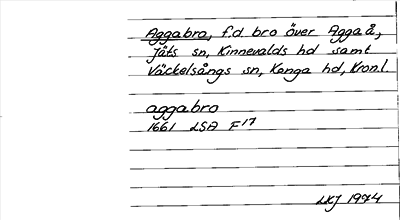 Aggabro, f.d. bro över Agga å,
Jäts sn, Kinnevalds hd samt
Väckelsångs sn, Konga hd, Kron.l.
aggabro
1661 LSA F17
LKJ 1974